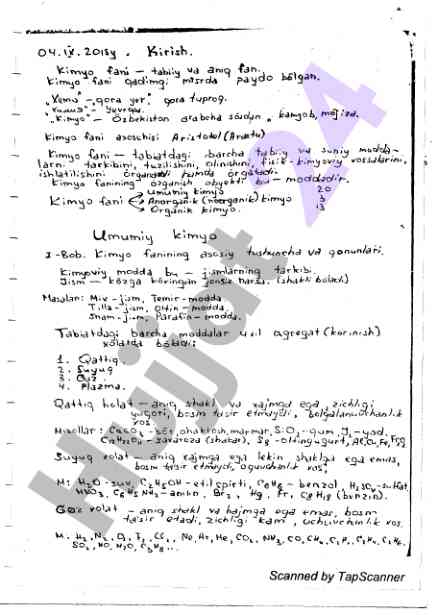 04.IX.2018y. Kirish.
Kimyo fani – tabiiy va aniq fan.
Kimyo fani qadimgi misrda paydo bo'lgan.
"Xemu" – "qora yer", qora tuproq.
"Kimyo" – O'zbekiston arabcha so'zdan "kamyob, mo'jiza.
Kimyo fani asoschisi Aristotel (Arastu)
Kimyo fani – tabiatdagi barcha tabiiy va sun'iy modda-
larni tarkibini, tuzilishini, olinishini, fizik-kimyoviy xossalarini,
ishlatilishini o'rganadi hamda o'rgatadi.
Kimyo fanining o'rganish obyekti bu – moddadir.
Umumiy kimyo 20
Kimyo fani Anorganik (noorganik) kimyo 3
Organik kimyo. 13
Umumiy kimyo
I-Bob. Kimyo fanining asosiy tushuncha va qonunlari.
Kimyoviy modda bu – jismlarning tarkibi.
Jism – ko'zga ko'ringan jonsiz narsa. (shakli bo'ladi)
Masalan: Mix-jism, Temir-modda
Tilla-jism, Oltin-modda,
Sham-jism, Parafin-modda.
Tabiatdagi barcha moddalar xil agregat (ko'rinish)
xolatda bo'ladi:
1. Qattiq.
2. Suyuq
3. Gaz.
4. Plazma.
Qattiq holat – aniq shakl va xajmga ega, zichligi
yuqori, bosm ta'sir etmaydi, bolg'alanuvchanlik
xos.
Misollar: ohaktosh, marmar, SiO2-qum, I2-yod,
C12H22O11-saxaroza (shakar), S8-oltingugurt, Al, Cu, Fe,
Suyuq xolat – aniq xajmga ega lekin shaklga ega emas,
bosm ta'sir etmaydi, oquvchanlik xos.
M: H2O-suv, C2H5OH-etil spirti, C6H6-benzol, H2SO4-sulfat,
HNO3, C6H5NH2-anilin, Br2, Hg, Fr, C8H18 (benzin).
Gaz xolat – aniq shakl va hajmga ega emas, bosm
ta'sir etadi, zichligi kam, uchuvchanlik xos.
M. H2, N2, O2, F2, Cl2, Ne, He, CO2, NH3, CO, CH4,
SO2, NO, H2O, C3H8...
Hujjat 24
Scanned by TapScanner